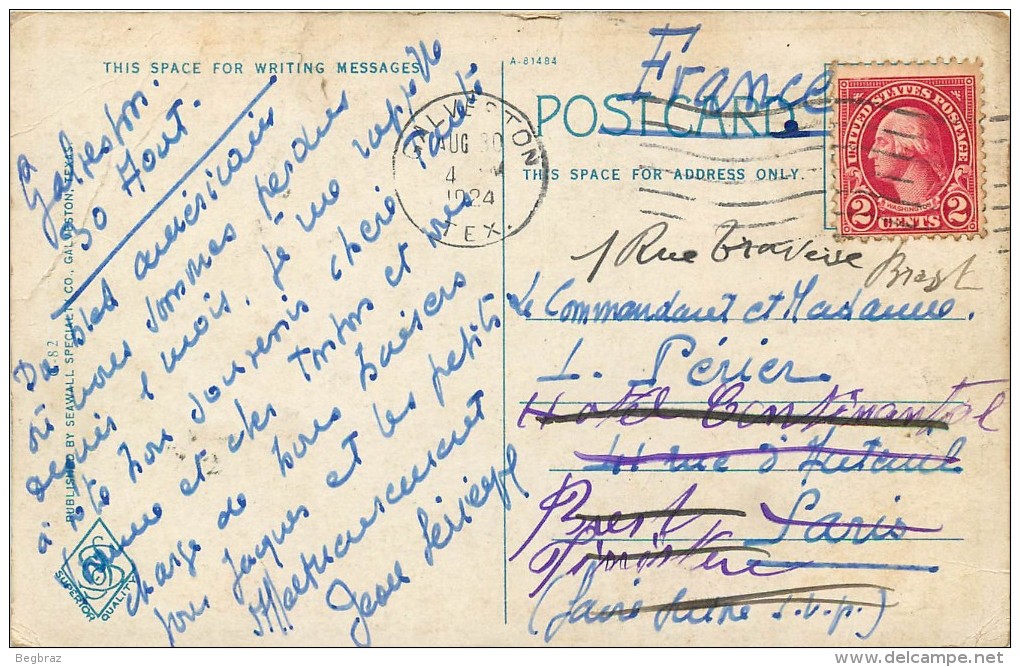 THIS SPACE FOR WRITING MESSAGES
Galveston.
30 Août.
Du bled américain
où nous sommes perdus
depuis 1 mois, je me rappelle
à votre bon souvenir chère
et des et me
charge de bons baisers
pour Jacques et les petits
Affectueusement
Jean
PUBLISHED BY SEAWALL SPECIALTY CO., GALVESTON, TEXAS
G-82
SUPERIOR QUALITY
A-81484
France
POSTCARD
THIS SPACE FOR ADDRESS ONLY.
GALVESTON
AUG 30
4
1924
TEX.
UNITED STATES POSTAGE
WASHINGTON
2 CENTS 2
1 Rue Traverse
Brest
Le Commandant et Madame
L. Périer
Hotel Continental
41 rue d'
Brest Paris
Finistère
(faire suivre s.v.p.)
Begbraz
delcampe.net